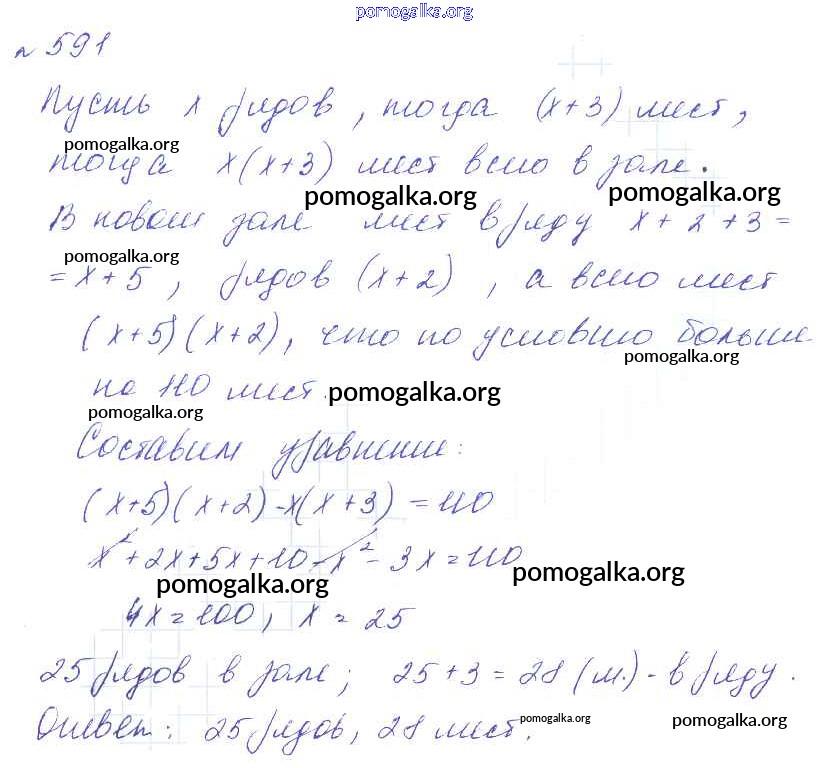 pomogalka.org
№ 591
Пусть x рядов, тогда (x+3) мест,
pomogalka.org
тогда x(x+3) мест всего в зале.
pomogalka.org pomogalka.org
В новом зале мест в ряду x + 2 + 3 =
pomogalka.org
= x + 5, рядов (x+2), а всего мест
(x+5)(x+2), что по условию больше
pomogalka.org
на 110 мест.
pomogalka.org
pomogalka.org
Составим уравнение:
(x+5)(x+2)-x(x+3) = 110
x² + 2x + 5x + 10 - x² - 3x = 110
pomogalka.org pomogalka.org
4x = 100, x = 25
25 рядов в зале; 25 + 3 = 28 (м.) - в ряду.
Ответ: 25 рядов, 28 мест.
pomogalka.org pomogalka.org